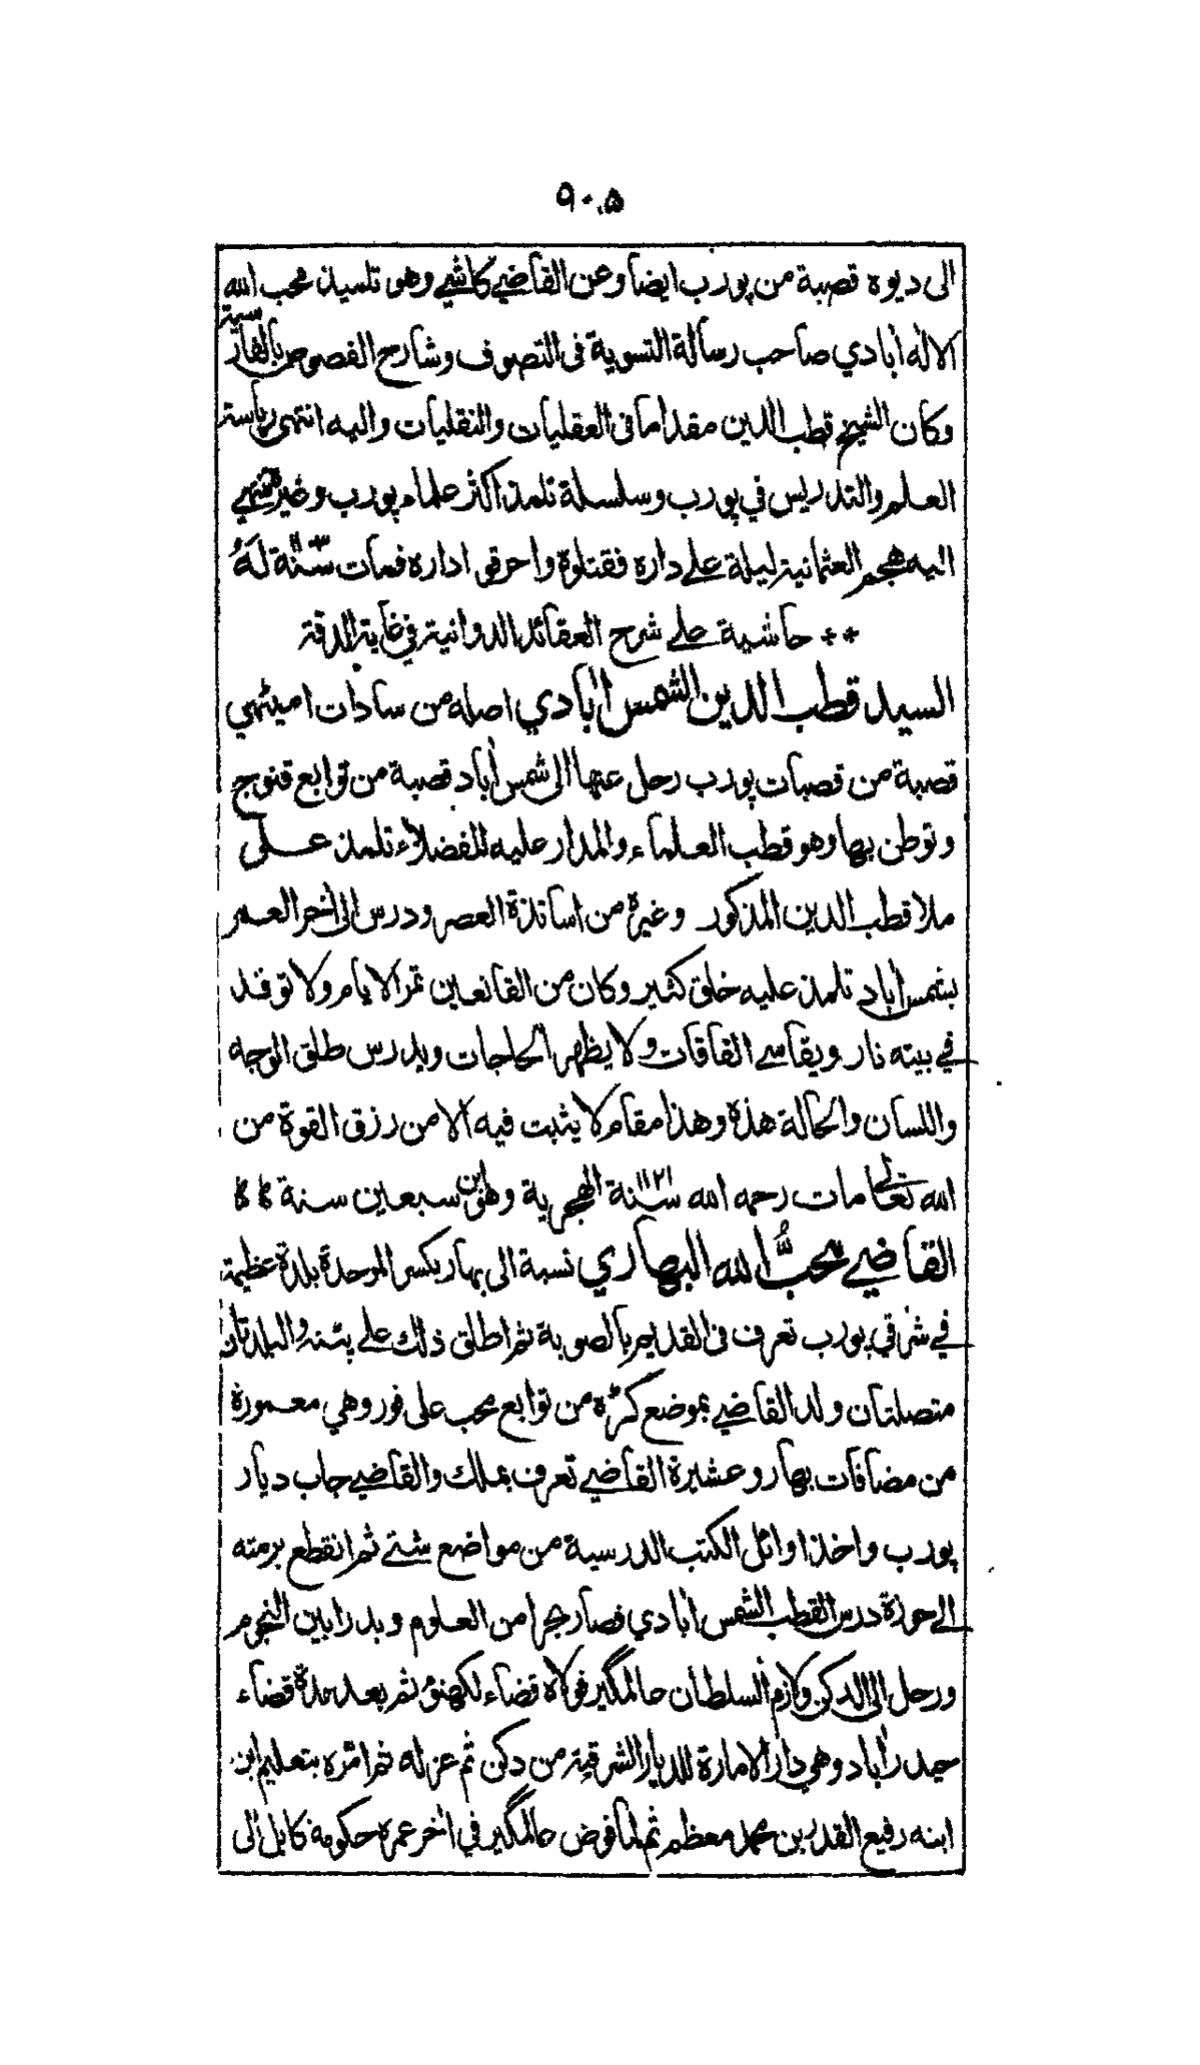 ٩٠٥
الى ديوه قصبة من پورب ايضا وعن القاضي كاشي وهو تلميذ محب الله
الاله اٰبادي صاحب رسالة التسوية فى التصوف وشارح الفصوص بالفارسية
وكان الشيخ قطب الدين مقداما فى العقليات والنقليات واليه انتهى رياسة
العلم والتدريس في پورب وسلسلة تلمذ اكثر علماء پورب وغيره تنتهي
اليه هجم العثمانية ليلة على داره فقتلوه واحرقوا داره فمات سنة لَهُ
** حاشية على شرح العقائد الدوانية في غاية الدقة
السيد قطب الدين الشمس اٰبادي اصله من سادات اميٹهي
قصبة من قصبات پورب رحل عنها الى شمس اٰباد قصبة من توابع قنوج
وتوطن بها وهو قطب العلماء والمدار عليه للفضلاء تلمذ على
ملا قطب الدين المذكور وغيره من اساتذة العصر ودرس الى اٰخر العمر
بشمس اٰباد تلمذ عليه خلق كثير وكان من القانعين تمر الايام ولا توقد
في بيته نار ويقاسي الفاقات ولا يظهر الحاجات ويدرس طلق الوجه
واللسان والحالة هذه وهذا مقام لا يثبت فيه الا من رزق القوة من
الله تعالى مات رحمه الله سنة ١١٢١ الهجرية وهو ابن سبعين سنة
القاضي محبُّ الله البهاري نسبة الى بهار بكسر الموحدة بلدة عظيمة
في شرقي پورب تعرف فى القديم بالصوبة ثم اطلق ذلك على پٹنه والبلدتان
متصلتان ولد القاضي بموضع كڑه من توابع محب على فور وهي معمورة
من مضافات بهار وعشيرة القاضي تعرف بملك والقاضي جاب ديار
پورب واخذ اوائل الكتب الدرسية من مواضع شتى ثم انقطع برمته
الى حوزة درس القطب الشمس اٰبادي فصار بحرا من العلوم وبدرا بين النجوم
ورحل الى الدكن ولازم السلطان عالمگير فولاه قضاء لكهنؤ ثم بعد مدة قضاء
حيدر اٰباد وهي دار الامارة للديار الشرقية من دكن ثم عزله ثم امره بتعليم ابن
ابنه رفيع القدر بن محمد معظم ثم لما فوض عالمگير في اٰخر عمره حكومة كابل الى